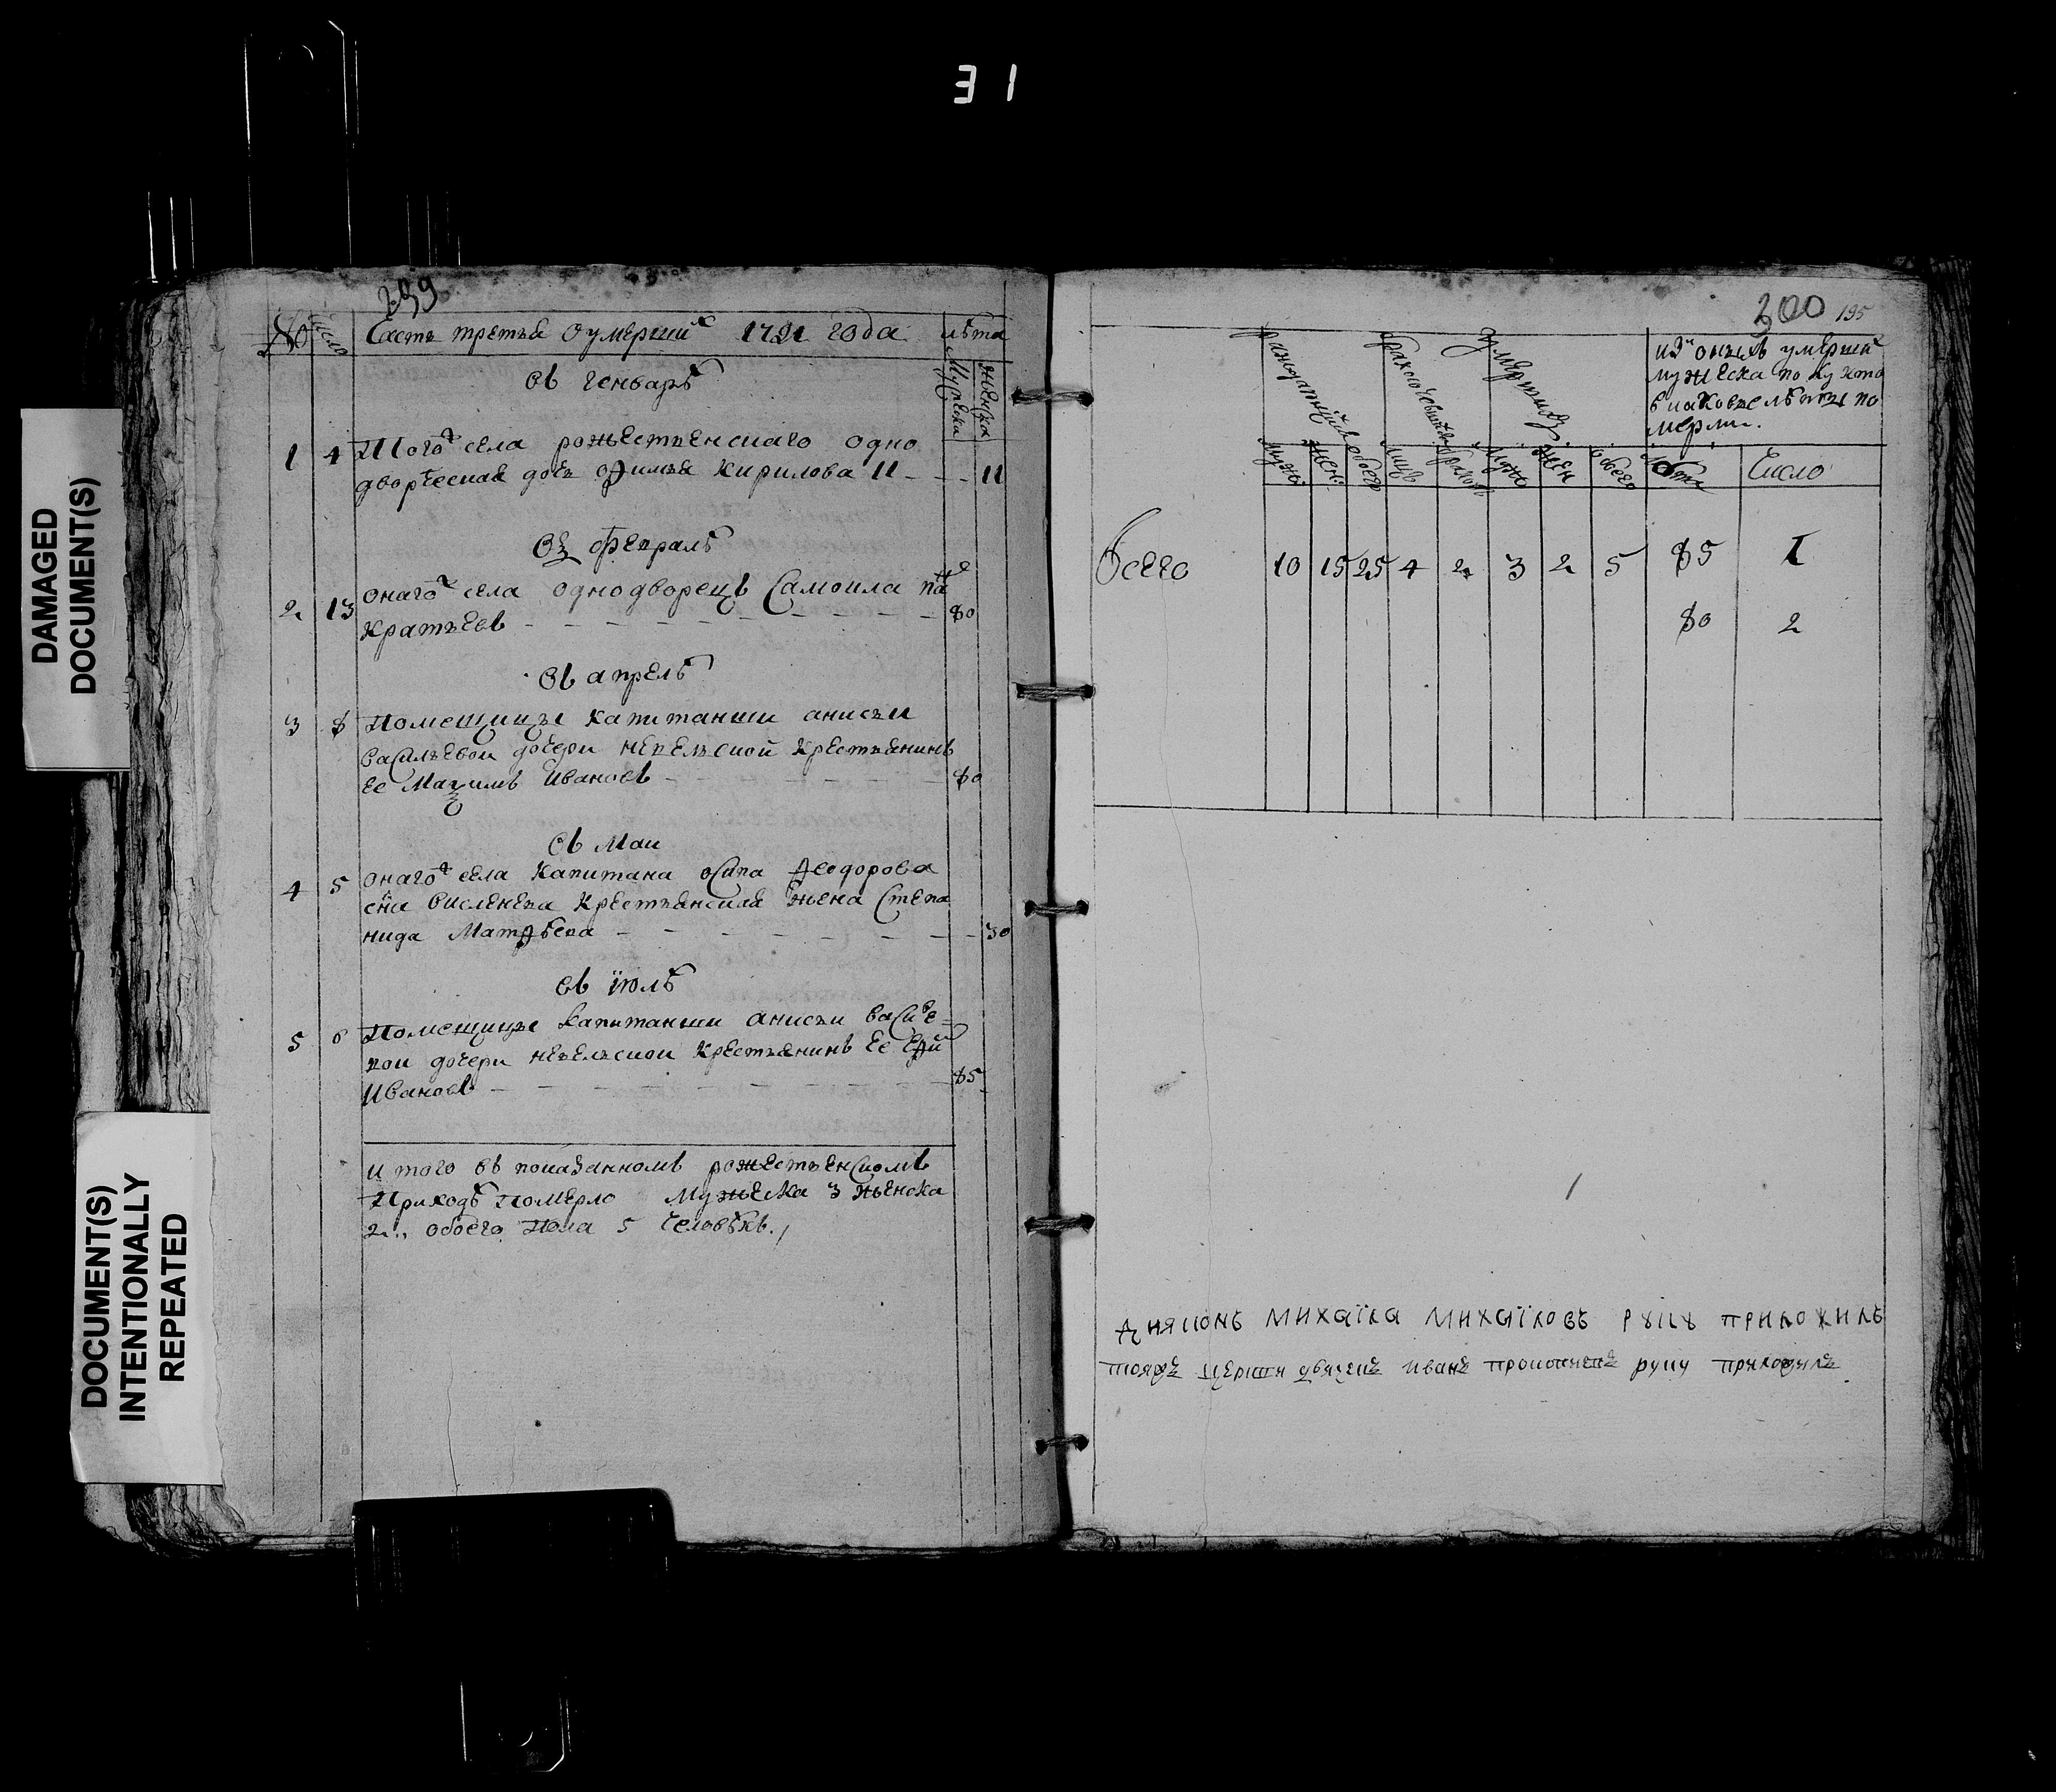 31
DAMAGED
DOCUMENT(S)
DOCUMENT(S)
INTENTIONALLY
REPEATED
299
№ число Часть третья оумершиⷯ года лѣта
мужеска женска
въ генварѣ
1 4 Тогоⷤ села рожественскаго одно
дворческая дочь Кирилова 11 11
въ февралѣ
2 13 онагоⷤ села однодворецъ Самоила паⷩ
кратьевъ 80
въ апрелѣ
3 8 Помещицы капитанши анисьи
васильевои дочери невельской крестьянинъ
ее Маѯимъ Ивановъ 80
въ Маи
4 5 онагоⷤ села капитана осипа Ѳеодорова
сн҃а крестьянская жена Степа
нида Матѳѣева 30
въ iюлѣ
5 6 Помещицы капитанши анисьи
вои дочери невельскои крестьянинъ ее
Ивановъ 85
итого въ показанномъ рожественскомъ
Приходѣ померло мужеска 3 женска
2 обоего пола 5 человѣкъ
300 195
умершихъ
изъ онихъ умершиⷯ
мужеска полу кто
в каковые лѣты по
мерли.
мужеⷭ жен: обоего мужеⷭ жен обоего лѣта Число
Всего 10 15 25 4 2 3 2 5 85 1
80 2
михаiла михаiловъ рꙋкꙋ приложилъ
тояжъ церкви иванъ руку приложилъ